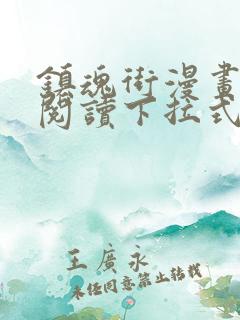 鎮魂街漫畫
閱讀下拉式
王廣永
未經同意禁止轉載